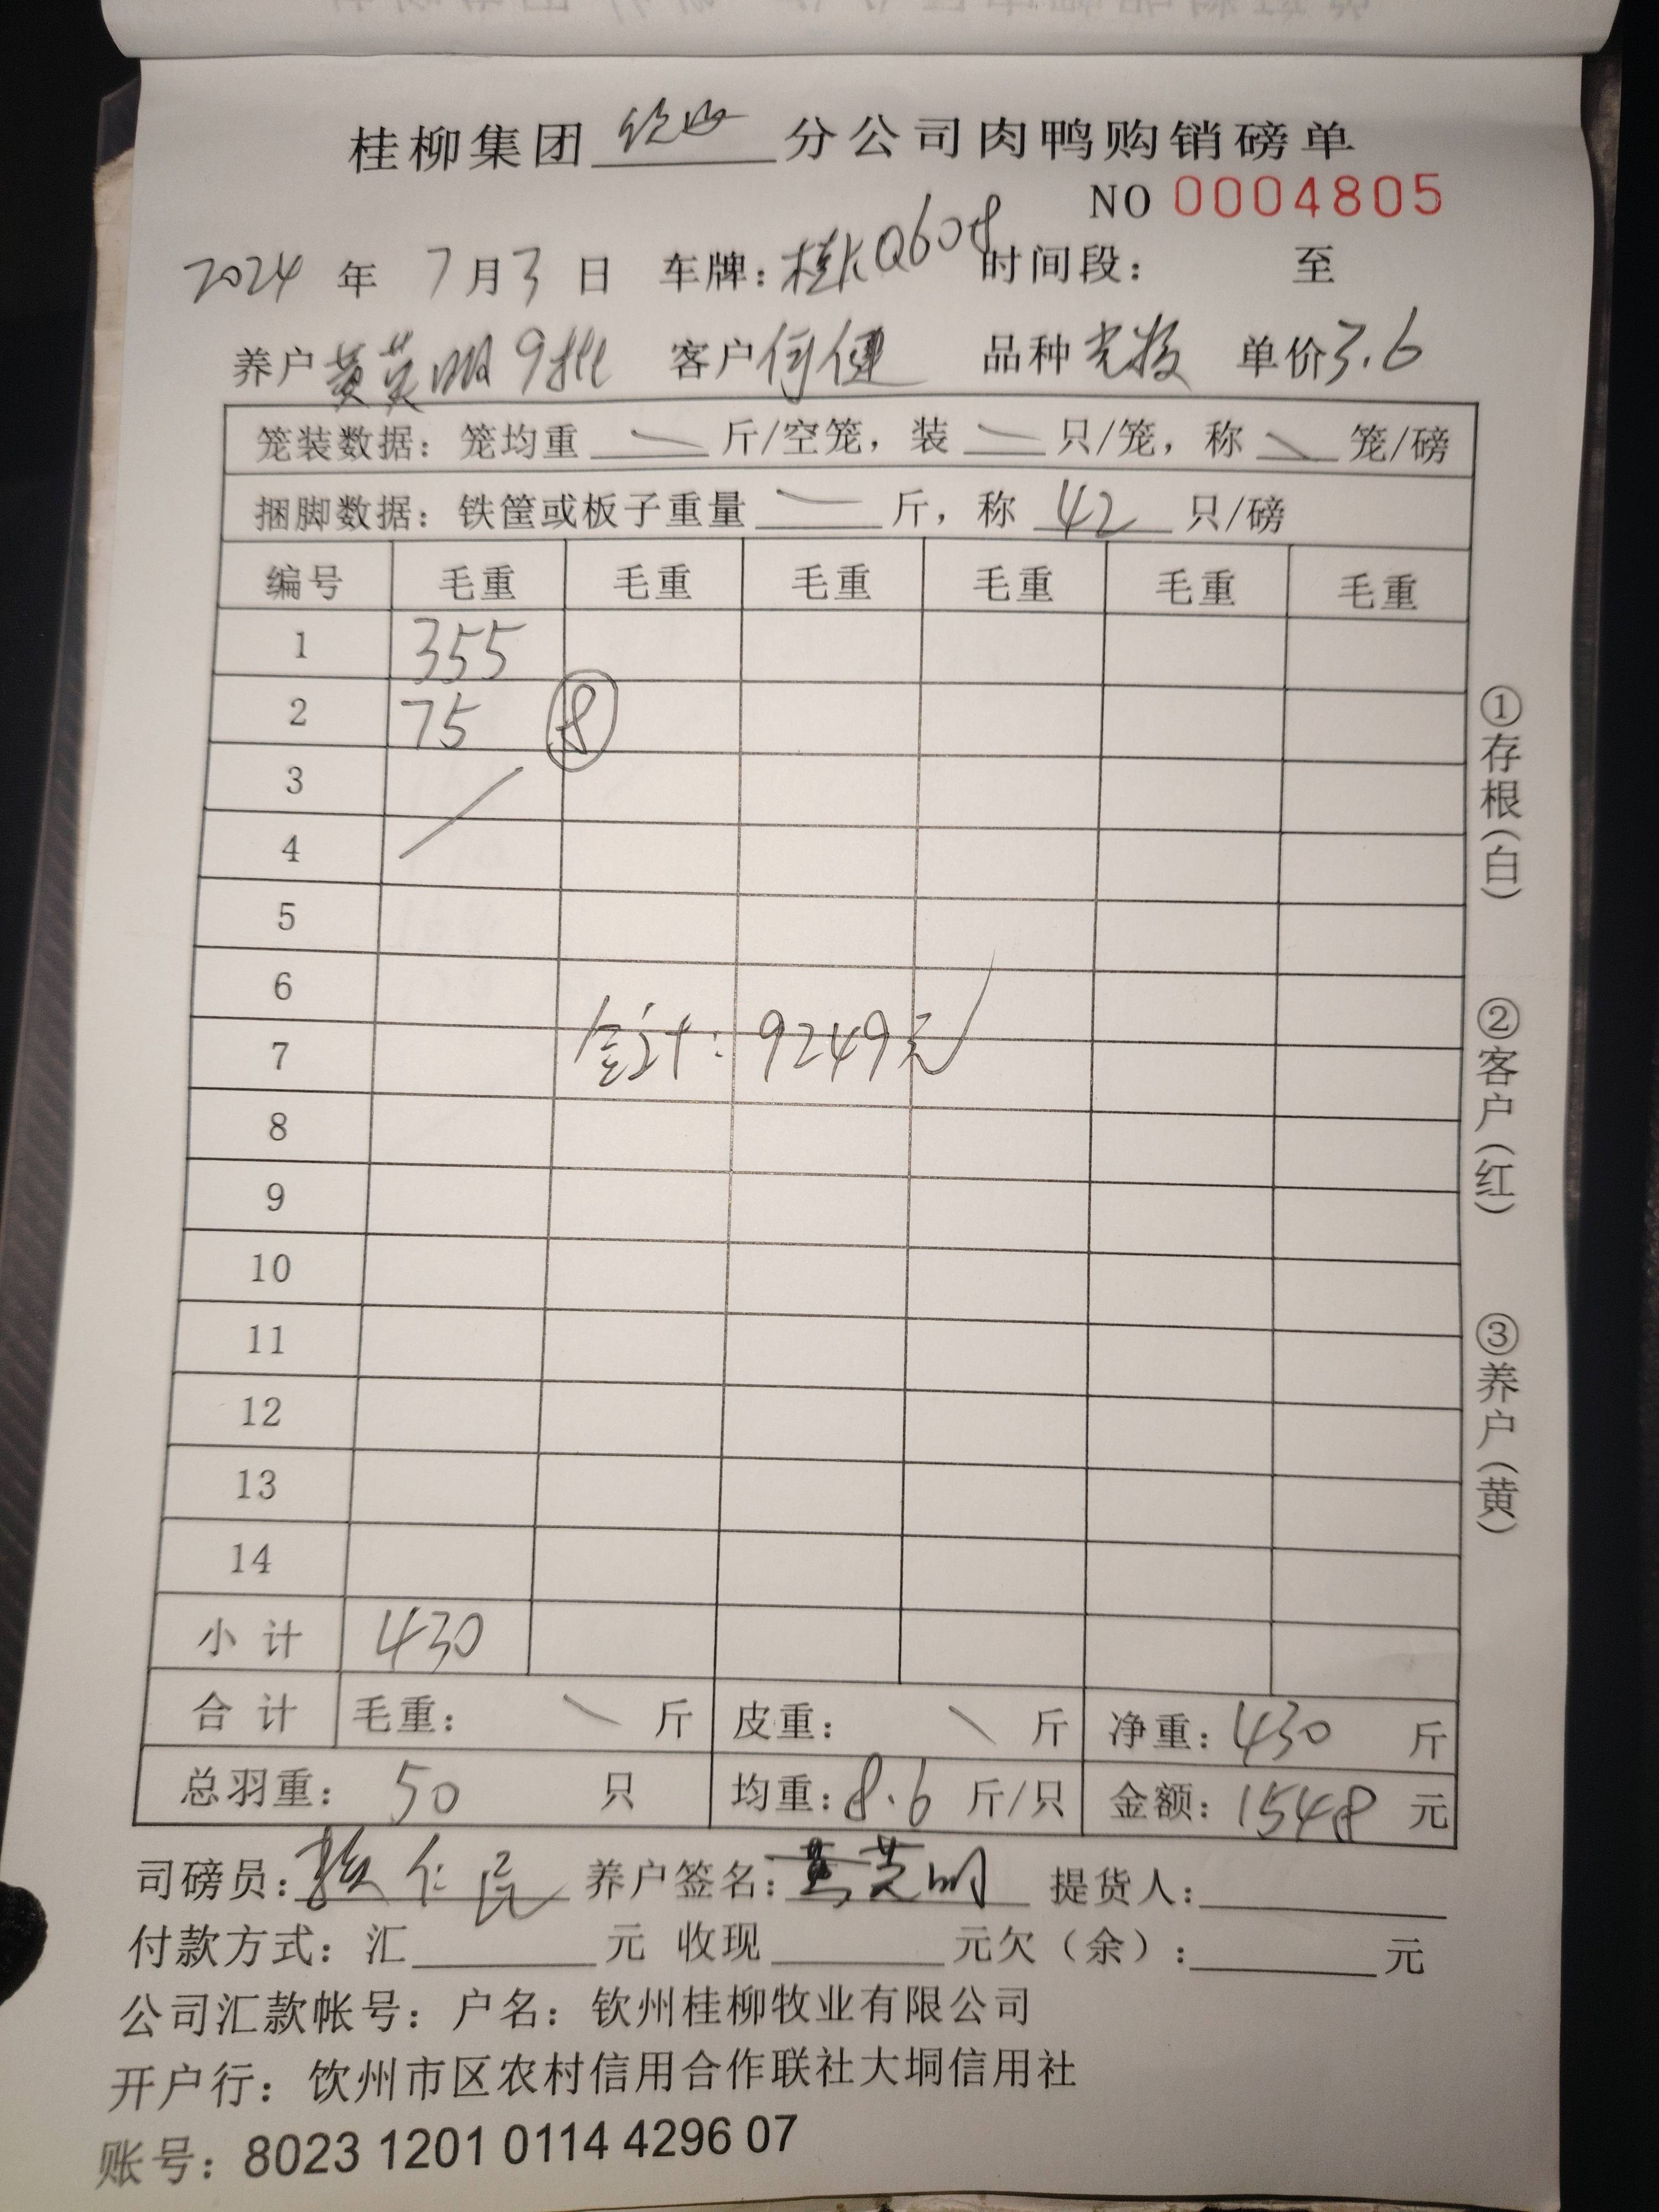 桂柳集团 分公司肉鸭购销磅单
NO 0004805
2024 年 7月3 日 车牌：桂KQ608 时间段： 至
养户 黄英明 9批 客户 何健 品种 单价3.6
笼装数据：笼均重 斤/空笼，装 只/笼，称 笼/磅
捆脚数据：铁筐或板子重量 斤，称 42 只/磅
编号 毛重 毛重 毛重 毛重 毛重 毛重
1 355
2 75 ⑧
3
4
5
6
7 合计：9249元
8
9
10
11
12
13
14
小计 430
合计 毛重： 斤 皮重： 斤 净重：430 斤
总羽重： 50 只 均重：8.6 斤/只 金额：1548 元
司磅员： 仁 养户签名：黄英明 提货人：
付款方式：汇 元 收现 元欠（余）： 元
公司汇款帐号：户名：钦州桂柳牧业有限公司
开户行：饮州市区农村信用合作联社大垌信用社
账号：8023 1201 0114 4296 07
①存根（白）
②客户（红）
③养户（黄）